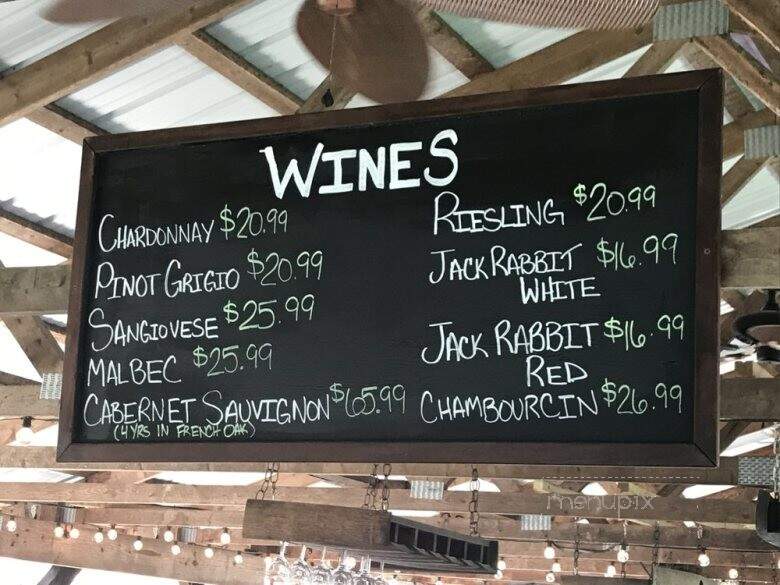 WINES
CHARDONNAY $20.99
PINOT GRIGIO $20.99
SANGIOVESE $25.99
MALBEC $25.99
CABERNET SAUVIGNON $65.99
(4 YRS IN FRENCH OAK)
RIESLING $20.99
JACK RABBIT $16.99
WHITE
JACK RABBIT $16.99
RED
CHAMBOURCIN $26.99
menupix